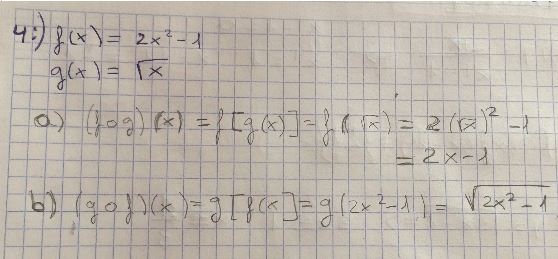 4:) f(x) = 2x² - 1
g(x) = √x
a) (f∘g)(x) = f[g(x)] = f(√x) = 2(√x)² - 1
= 2x - 1
b) (g∘f)(x) = g[f(x] = g(2x²-1) = √(2x² - 1)